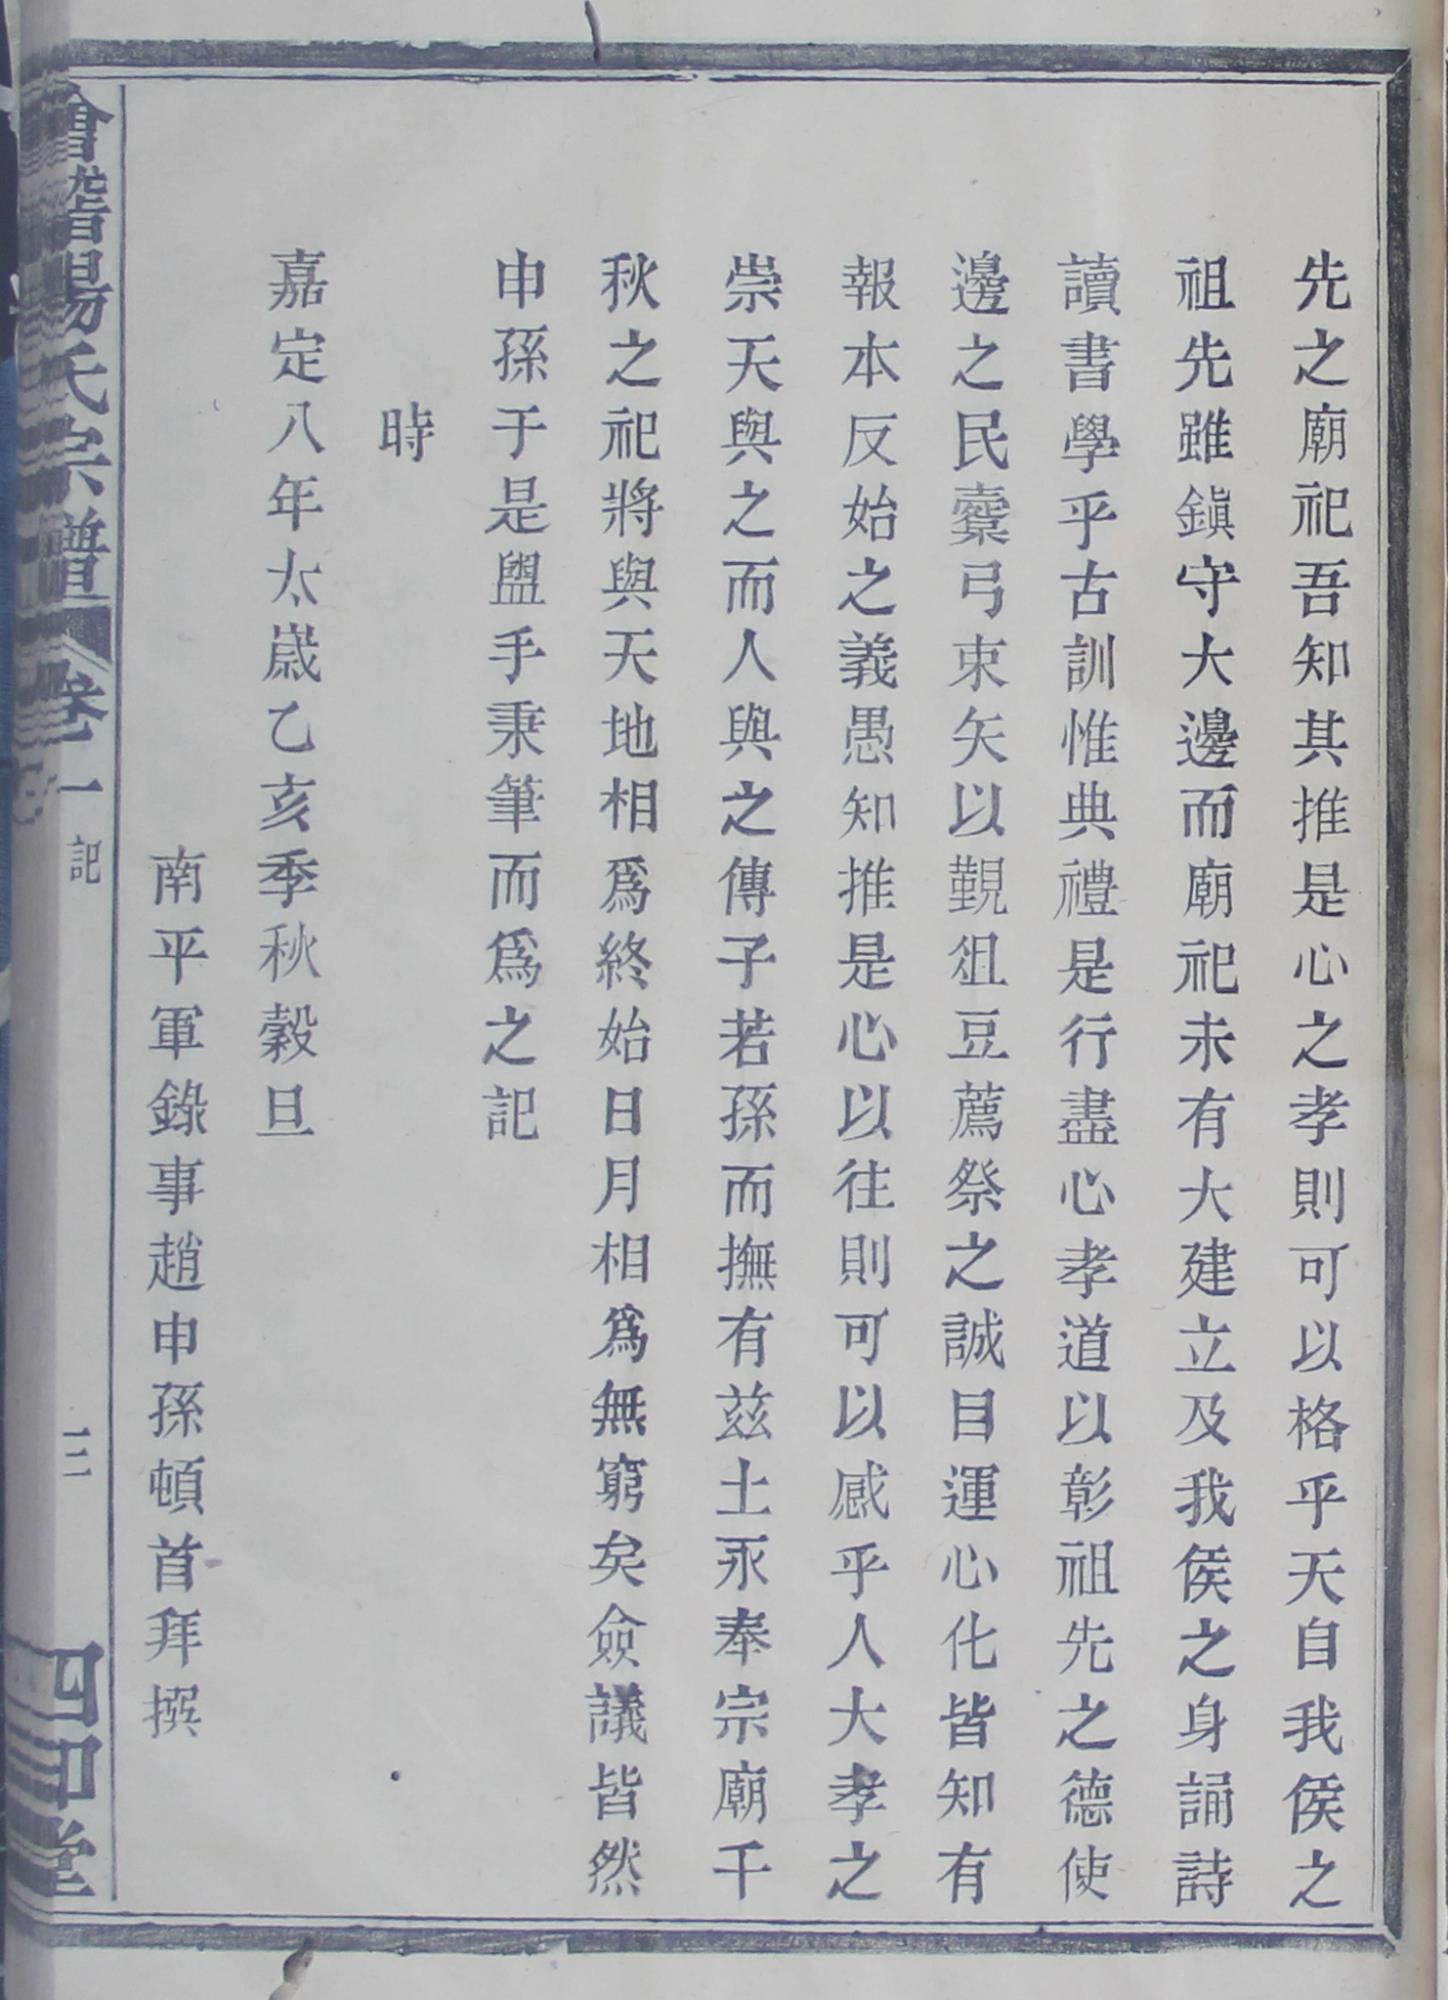 先之廟祀吾知其推是心之孝則可以格乎天自我侯之
祖先雖鎭守大邊而廟祀未有大建立及我侯之身誦詩
讀書學乎古訓惟典禮是行盡心孝道以彰祖先之德使
邊之民櫜弓束矢以覲俎豆薦祭之誠目運心化皆知有
報本反始之義愚知推是心以往則可以感乎人大孝之
崇天與之而人與之傳子若孫而撫有茲土永奉宗廟千
秋之祀將與天地相爲終始日月相爲無窮矣僉議皆然
申孫于是盥手秉筆而爲之記
時
嘉定八年太歲乙亥季秋穀旦
南平軍錄事趙申孫頓首拜撰
會稽楊氏宗譜 卷一 記 三 四知堂